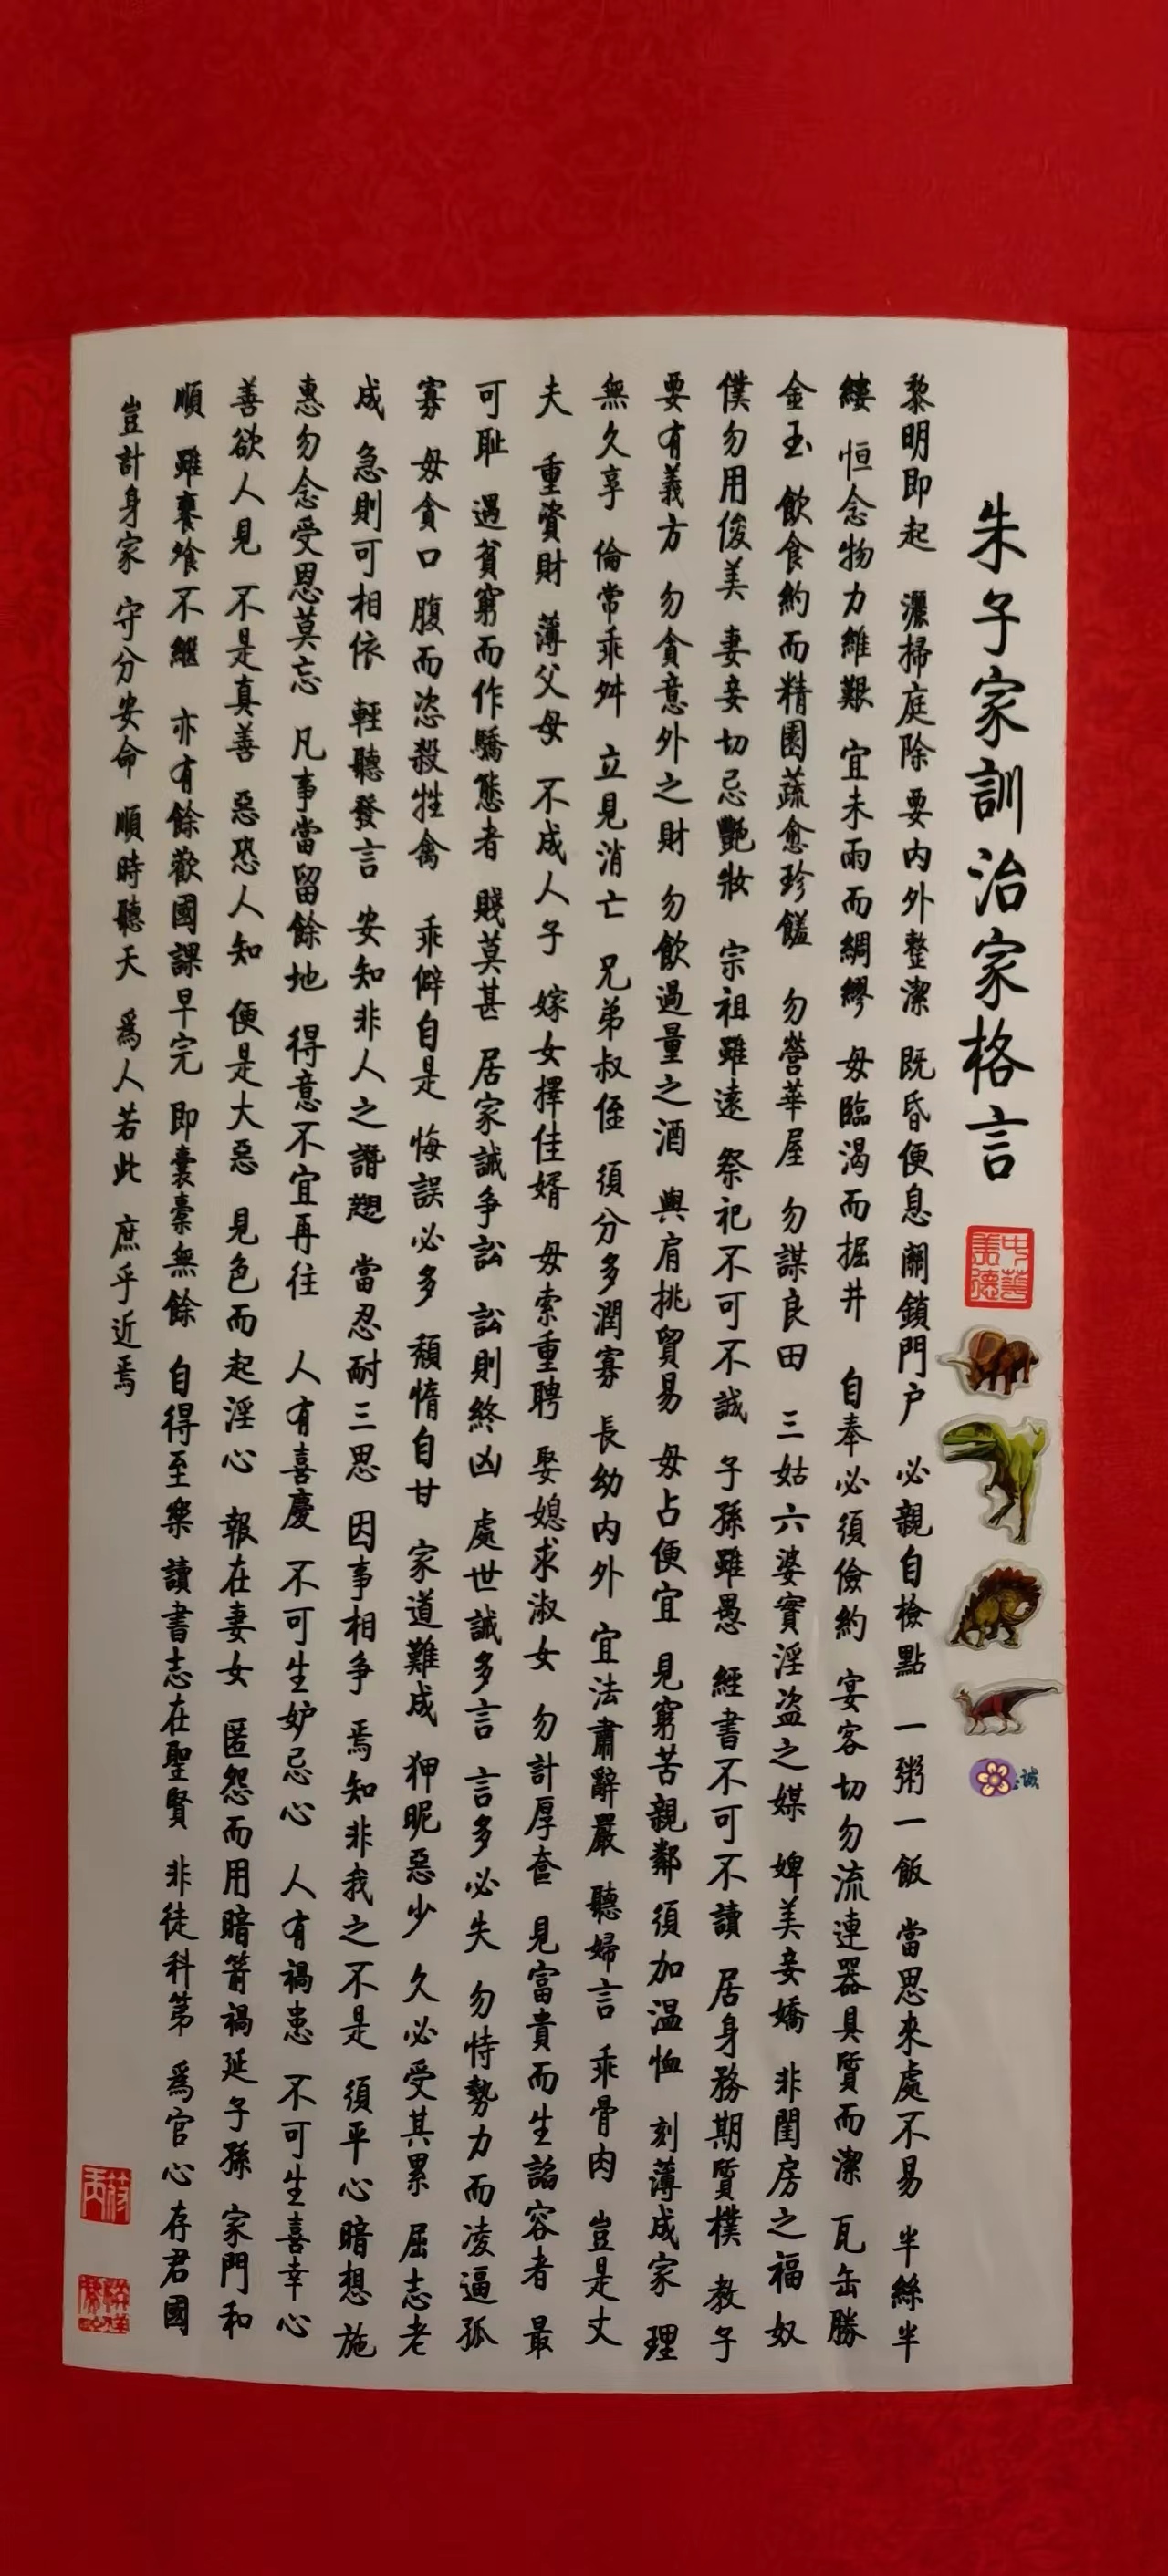 朱子家訓治家格言
中華美德
誠
黎明即起 灑掃庭除 要内外整潔 既昏便息 關鎖門户 必親自檢點 一粥一飯 當思來處不易 半絲半
縷 恒念物力維艱 宜未雨而綢繆 毋臨渴而掘井 自奉必須儉約 宴客切勿流連 器具質而潔 瓦缶勝
金玉 飲食約而精 園蔬愈珍饈 勿營華屋 勿謀良田 三姑六婆 實淫盗之媒 婢美妾嬌 非閨房之福 奴
僕勿用俊美 妻妾切忌艷妝 宗祖雖遠 祭祀不可不誠 子孫雖愚 經書不可不讀 居身務期質樸 教子
要有義方 勿貪意外之財 勿飲過量之酒 與肩挑貿易 毋占便宜 見窮苦親鄰 須加温恤 刻薄成家 理
無久享 倫常乖舛 立見消亡 兄弟叔侄 須分多潤寡 長幼内外 宜法肅辭嚴 聽婦言 乖骨肉 豈是丈
夫 重資財 薄父母 不成人子 嫁女擇佳婿 毋索重聘 娶媳求淑女 勿計厚奩 見富貴而生諂容者 最
可耻 遇貧窮而作驕態者 賤莫甚 居家誡争訟 訟則終凶 處世誡多言 言多必失 勿恃勢力而凌逼孤
寡 毋貪口腹而恣殺牲禽 乖僻自是 悔誤必多 頽惰自甘 家道難成 狎昵惡少 久必受其累 屈志老
成 急則可相依 輕聽發言 安知非人之譖愬 當忍耐三思 因事相争 焉知非我之不是 須平心暗想 施
惠勿念 受恩莫忘 凡事當留餘地 得意不宜再往 人有喜慶 不可生妒忌心 人有禍患 不可生喜幸心
善欲人見 不是真善 惡恐人知 便是大惡 見色而起淫心 報在妻女 匿怨而用暗箭 禍延子孫 家門和
順 雖饔飧不繼 亦有餘歡 國課早完 即囊橐無餘 自得至樂 讀書志在聖賢 非徒科第 爲官心存君國
豈計身家 守分安命 順時聽天 爲人若此 庶乎近焉